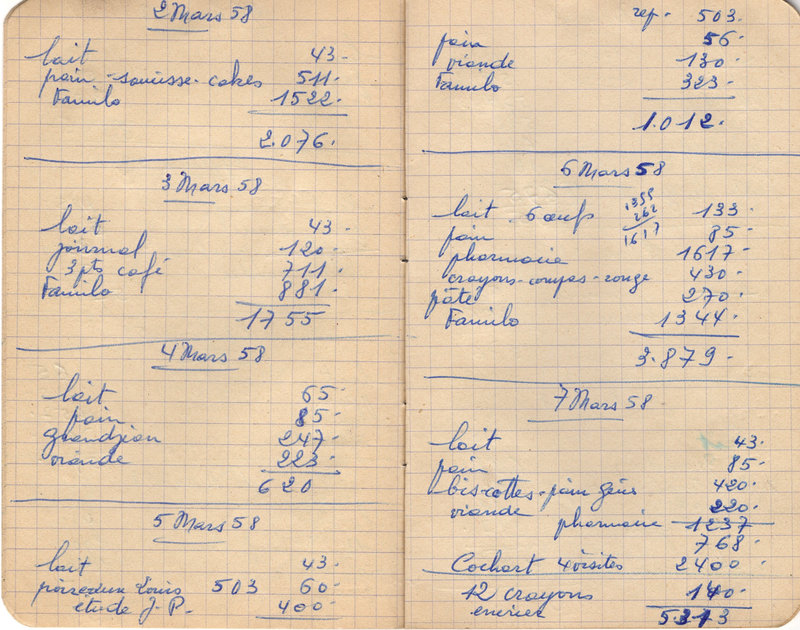 2 Mars 58
lait 43.
pain - saucisse - cakes 511.
Familo 1522.
2.076.
3 Mars 58
lait 43.
journal 120.
3 pts café 711.
Familo 881.
1755
4 Mars 58
lait 65.
pain 85.
247.
viande 223.
620
5 Mars 58
lait 43.
Louis 503 60.
étude J-P. 400.
rep. 503.
pain 56
viande 130.
Familo 323.
1.012.
6 Mars 58
lait - 6 œufs 133.
1355
262
1617
pain 85.
pharmacie 1617.
crayons - compas - rouge 430.
pâte 270.
Familo 1344.
3.879.
7 Mars 58
lait 43.
pain 85.
biscottes - pain 420.
viande 220.
pharmacie 1237
768.
Cochart 4 visites 2400.
12 crayons 140.
encrier 5.313